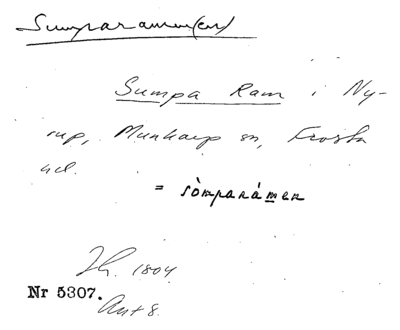 Sumparamm(en)
Sumpa Ram i Ny-
rup, Munkarp sn, Frosta
hd.
= sòmparámen
Th. 1804.
Nr 5307.
Ant 8.